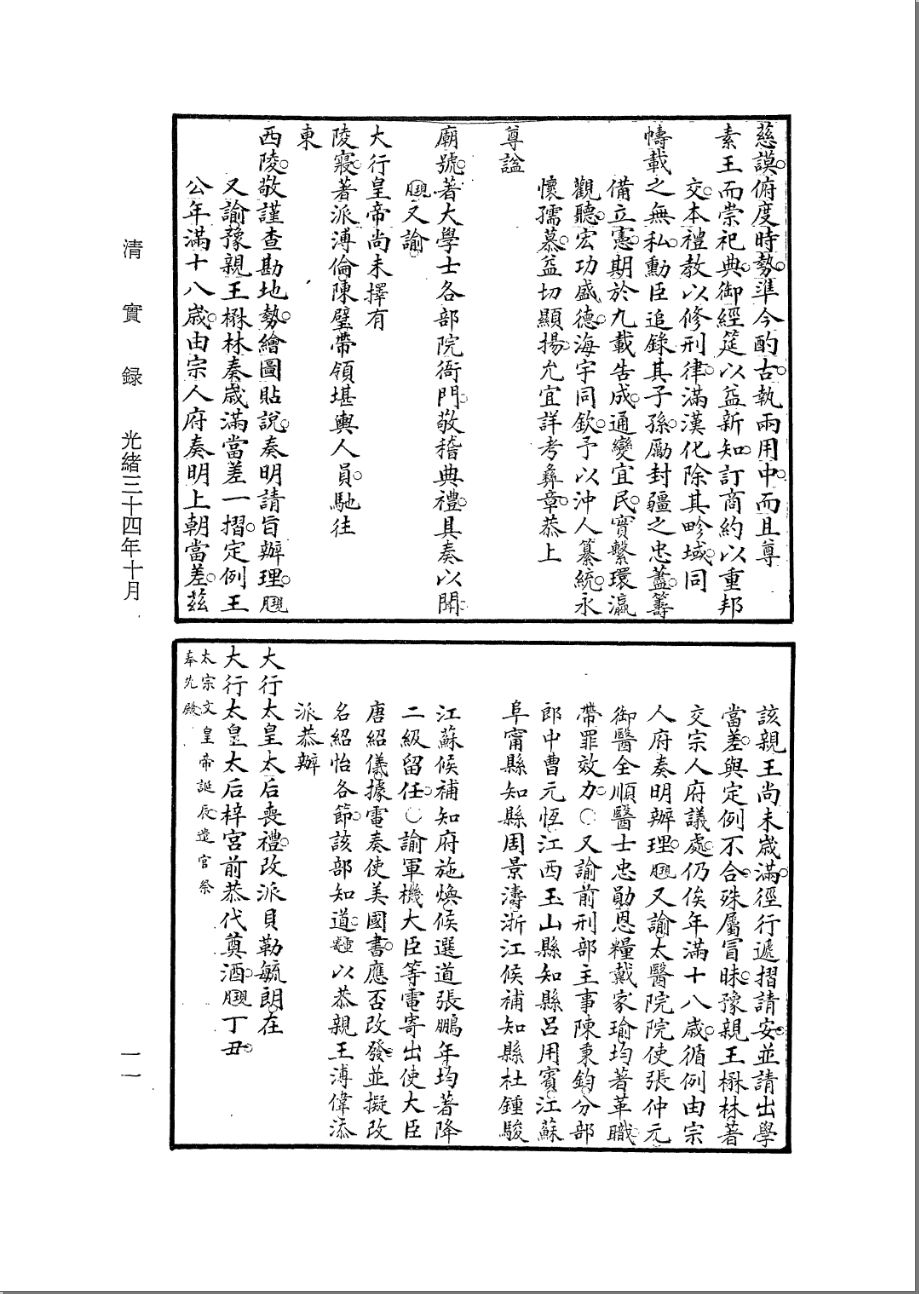 慈謨。俯度時勢。準今酌古。執兩用中。而且尊
素王而崇祀典。御經筵以益新知。訂商約以重邦
交。本禮教以修刑律。滿漢化除其畛域。同
幬載之無私。勳臣追錄其子孫。勵封疆之忠藎。籌
備立憲。期於九載告成。通變宜民。實繫環瀛
觀聽。宏功盛德。海宇同欽。予以沖人纂統。永
懷孺慕。益切顯揚。允宜詳考彝章。恭上
尊諡
廟號。著大學士各部院衙門。敬稽典禮。具奏以聞。
又諭
大行皇帝尚未擇有
陵寢。著派溥倫陳璧帶領堪輿人員。馳往
東
西陵。敬謹查勘地勢。繪圖貼說。奏明請旨辦理。
又諭豫親王楙林奏歲滿當差一摺。定例王
公年滿十八歲。由宗人府奏明上朝當差。茲
該親王尚未歲滿。徑行遞摺請安。並請出學
當差。與定例不合。殊屬冒昧。豫親王楙林著
交宗人府議處。仍俟年滿十八歲。循例由宗
人府奏明辦理。又諭太醫院院使張仲元
御醫全順醫士忠勛恩糧戴家瑜均著革職。
帶罪效力。○又諭前刑部主事陳秉鈞分部
郎中曹元恆江西玉山縣知縣呂用賓江蘇
阜甯縣知縣周景濤浙江候補知縣杜鍾駿
江蘇候補知府施煥候選道張鵬年均著降
二級留任。○諭軍機大臣等電寄出使大臣
唐紹儀。據電奏使美國書。應否改發。並擬改
名紹怡各節。該部知道。以恭親王溥偉添
派恭辦
大行太皇太后喪禮。改派貝勒毓朗在
大行太皇太后梓宮前恭代奠酒。丁丑。
太宗文皇帝誕辰遣官祭
奉先殿
清實錄 光緒三十四年十月
一一